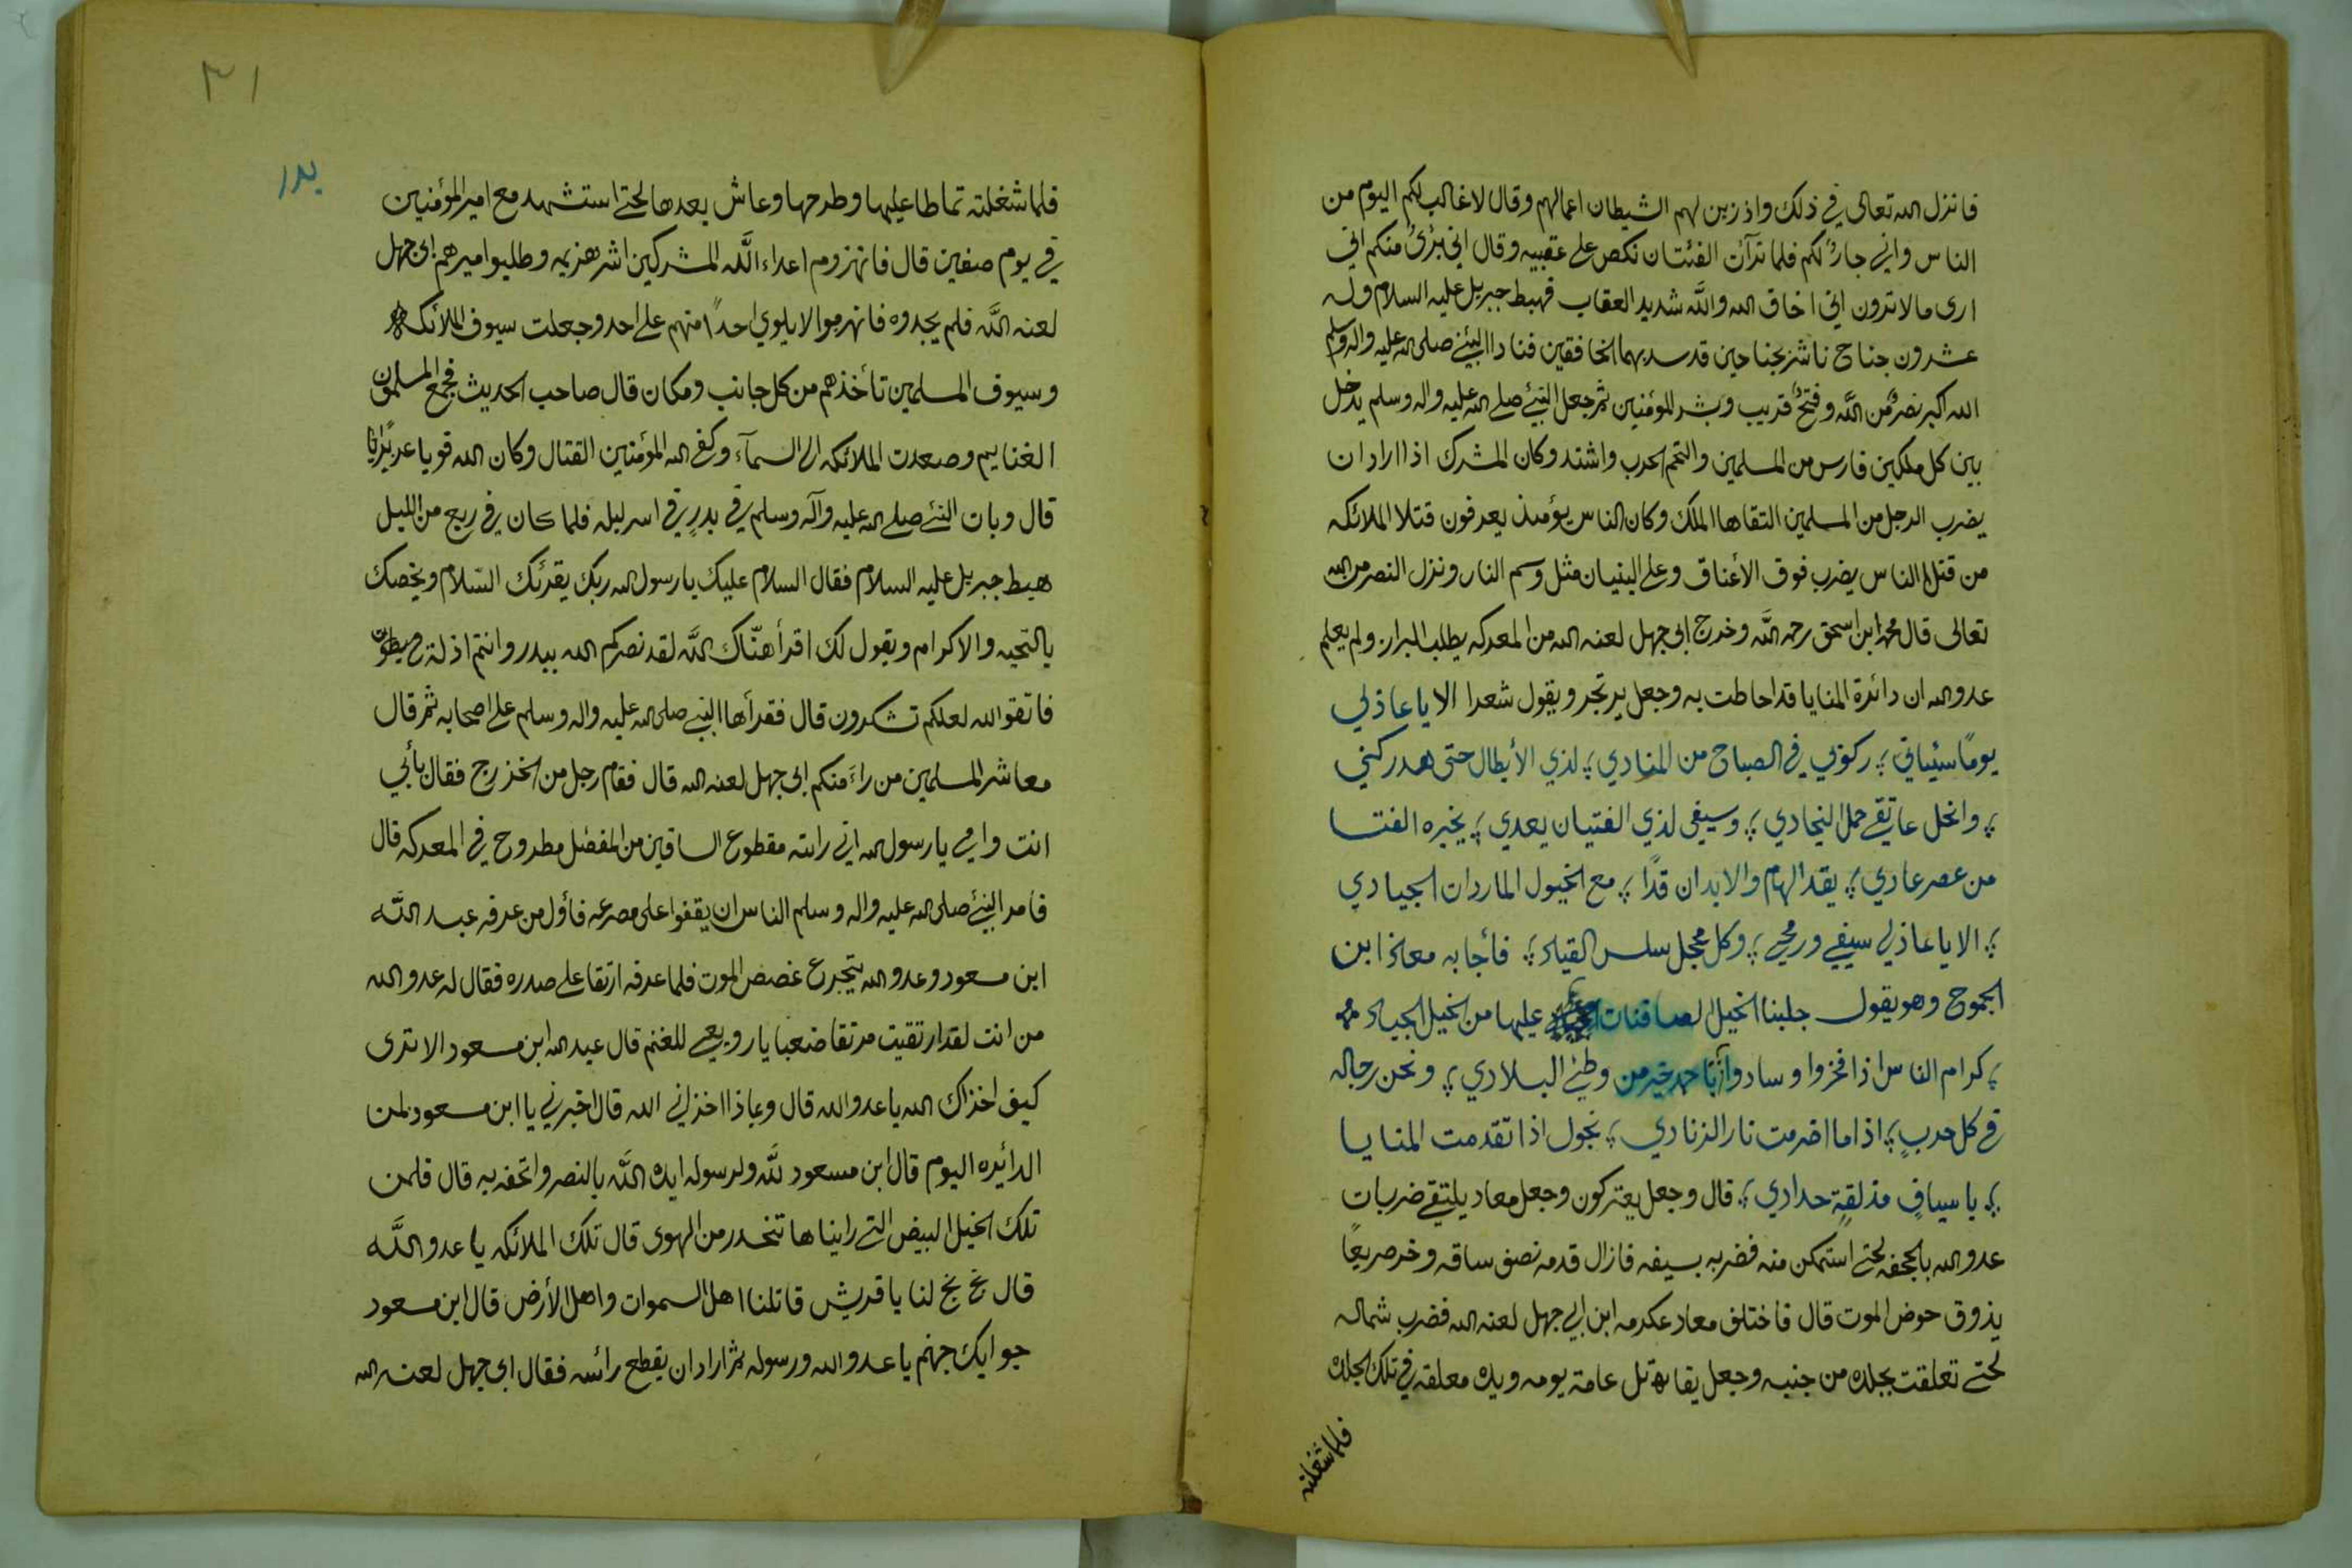 فانزل الله تعالى في ذلك واذ زين لهم الشيطان اعمالهم وقال لا غالب لكم اليوم من
الناس واني جار لكم فلما ترآئت الفئتان نكص على عقبيه وقال اني برئ منكم اني
ارى مالا ترون اني اخاف الله والله شديد العقاب فهبط جبريل عليه السلام وله
عشرون جناح ناشر بجناحين قد سد بهما الخافقين فنادا النبئ صلى الله عليه واله وسلم
الله اكبر نصرٌ من الله وفتحٌ قريب وبشر المؤمنين ثم جعل النبئ صلى الله عليه واله وسلم يدخل
بين كل ملكين فارس من المسلمين والتحم الحرب واشتد وكان المشرك اذا اراد ان
يضرب الرجل من المسلمين التقاها الملك وكان الناس يؤمئذ يعرفون قتلا الملائكه
من قتلا الناس يضرب فوق الأعناق وعلى البنيان مثل وسم النار ونزل النصر من الله
تعالى قال محمد ابن اسحق رحمه الله وخرج ابي جهل لعنه الله من المعركه يطلب البراز ولم يعلم
عدو الله ان دائرة المنايا قد احاطت به وجعل يرتجز ويقول شعرا الا يا عاذلي
يومًا سيئاتي ؛ ركوبي في الصباح من المنادي ؛ لذي الأبطال حتى هدركني
؛ وانحل عاتقي حمل النجادي ؛ وسيفي لذي الفتيان يعدي ؛ يخيره الفتا
من عصر عادي ؛ يقد الهام والابدان قدًا ؛ مع الخيول الماردات الجيادي
؛ الا يا عاذلي سيفي ورمحي ؛ وكل محجل سلس القياد ؛ فأجابه معاذ ابن
الجموح وهو يقول جلبنا الخيل الصافنات عليها من الخيل الجياد
؛ كرام الناس اذا فخزوا وسادوا وانا حمد خير من وطئ البلادي ؛ ونحن رجاله
في كل حربٍ ؛ اذا ما اضرمت نار الزنادي ؛ نجول اذا تقدمت المنايا
؛ باسيافٍ مذلقةٍ حدادي ؛ قال وجعل يعتركون وجعل معاد يلتقي ضربات
عدو الله بالجحفه لحتى استمكن منه فضربه بسيفه فازال قدمه نصف ساقه وخر صريعًا
يذوق حوض الموت قال فاختلف معاد عكرمه ابن ابي جهل لعنه الله فضرب شماله
لحتى تعلقت بجلده من جنبيه وجعل يقاتل عامة يومه ويده معلقه في تلك الجلده
فلما شغلته
٣١
بدر
فلما شغلته تماطا عليها وطرحها وعاش بعدها لحتى استشهد مع امير المؤمنين
في يوم صفين قال فانهزموم اعداء الله المشركين اشر هزيمه وطلبوا اميرهم ابي جهل
لعنه الله فلم يجدوه فانهرموا لا يلوي احدًا منهم على احد وجعلت سيوف الملائكه
وسيوف المسلمين تأخذهم من كل جانب ومكان قال صاحب الحديث فجمع المسلمون
الغنايم وصعدت الملائكه الى السمآء وكفى الله المؤمنين القتال وكان الله قويا عزيزًا
قال وبات النبئ صلى الله عليه وآله وسلم في بدرٍ في اسر ليله فلما كان في ربع من الليل
هبط جبريل عليه السلام فقال السلام عليك يا رسول الله ربك يقرئك السلام ويخصك
بالتحيه والاكرام ويقول لك اقرأ هنّاك الله لقد نصركم الله ببدر وانتم اذلة
فاتقو الله لعلكم تشكرون قال فقرأها النبي صلى الله عليه واله وسلم على اصحابه ثم قال
معاشر المسلمين من راءَ منكم ابي جهل لعنه الله قال فقام رجل من الخزرج فقال بأبي
انت وامي يا رسول الله اني راءته مقطوع الساقين من المفضل مطروح في المعركه قال
فامر النبئ صلى الله عليه واله وسلم الناس ان يقفوا على مصرعه فأول من عرفه عبد الله
ابن مسعود وعدو الله يتجرع غصص الموت فلما عرفه ارتقا على صدره فقال له عدو الله
من انت لقد ارتقيت مرتقا ضعبا يا رويعي للغنم قال عبد الله ابن مسعود الا ترى
كيف اخذاك الله يا عدو الله قال وبماذا اخزاني الله قال اخبرني يا ابن مسعود لمن
الدائيره اليوم قال ابن مسعود لله ولرسوله ايده الله بالنصر واتحفه به قال فلمن
تلك الخيل البيض التي رايناها تنحدر من الهوى قال تلك الملائكه يا عدو الله
قال بخ بخ لنا يا قريش قاتلنا اهل السموات واهل الأرض قال ابن مسعود
جوابك جهنم يا عدو الله ورسوله ثم اراد ان يقطع رائسه فقال ابي جهل لعنه الله